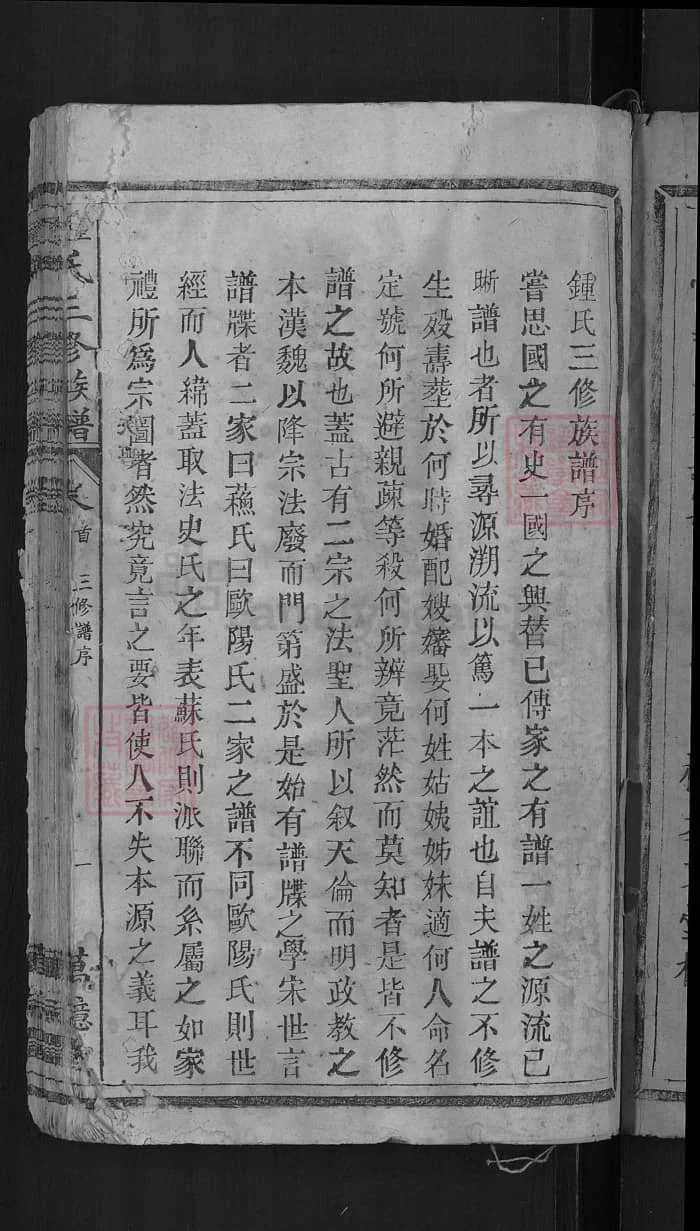 鍾氏三修族譜序
嘗思國之有史一國之興替已傳家之有譜一姓之源流已
晣譜也者所以尋源溯流以篤一本之誼也自夫譜之不修
生殁壽塟於何時婚配嫂嬸娶何姓姑姨姊妹適何人命名
定號何所避親疎等殺何所辨竟茫然而莫知者是皆不修
譜之故也蓋古有二宗之法聖人所以叙天倫而明政教之
本漢魏以降宗法廢而門第盛於是始有譜牒之學宋世言
譜牒者二家曰蘓氏曰歐陽氏二家之譜不同歐陽氏則世
經而人緯蓋取法史氏之年表蘇氏則派聯而系屬之如家
禮所爲宗圖者然究竟言之要皆使人不失本源之義耳我
氏三修族譜
首
三修譜序
一
萬億